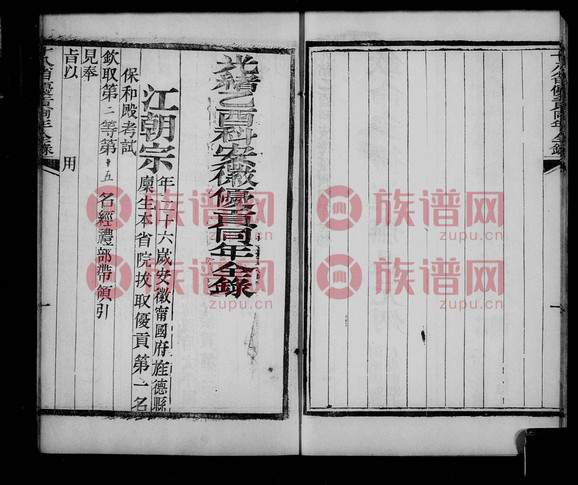 十八省優貢同年全錄
光緒乙酉科安徽優貢同年全錄
江朝宗
年二十六歲安徽甯國府旌德縣
廩生本省院拔取優貢第一名
保和殿考試
欽取第二等第十五名經禮部帶領引
見奉
旨以 用
十八省優貢同年全錄
族谱网
zupu.cn
族谱网
zupu.cn
族谱网
zupu.cn
族谱网
zupu.cn